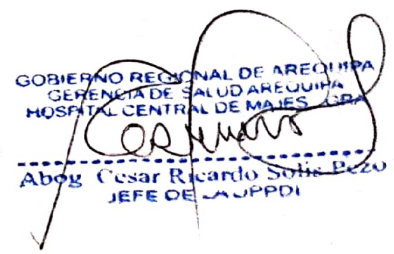 GOBIERNO REGIONAL DE AREQUIPA
GERENCIA DE SALUD AREQUIPA
HOSPITAL CENTRAL DE MAJES GRA
Abog Cesar Ricardo Solis Pezo
JEFE DE LA UPPDI